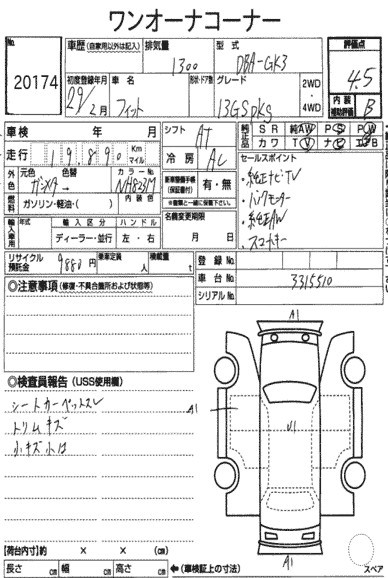 ワンオーナーコーナー
No.
20174
車歴(自家用以外は記入) 排気量 型式
1300 DBA-GK3
評価点
4.5
初度登録年月 車名 形状・ドア数 グレード 2WD・4WD
29/2月 フィット 13GSPKG
内装補助評価
B
車検 年 月
シフト AT
純正品 SR 純AW PS PW
カワ TV ナビ エアB
走行 19,890 Km マイル
冷房 AC
セールスポイント
・純正ナビTV
・バックモニター
・純正AW
・スマートキー
外色 元色 色替 カラーNo.
ガンメタ → NH823M
新車整備手帳(保証書付) 有・無
燃料 ガソリン・軽油・( ) 内装色
※書類と一緒に保管下さい。
輸入車用 年式 輸入区分 ハンドル
ディーラー・並行 左・右
名義変更期限
月 日
リサイクル預託金 9880円 乗車定員 人 積載量 t
登録No.
車台No. 3315510
シリアルNo.
◎注意事項(修復・不具合箇所および状態等)
A1
◎検査員報告(USS使用欄)
シートカーペットスレ
トリムキズ
小キズ小凹
A1
U1
A1
スペア
【荷台内寸】約 × × (cm)
長さ cm 幅 cm 高さ cm ←(車検証上の寸法)